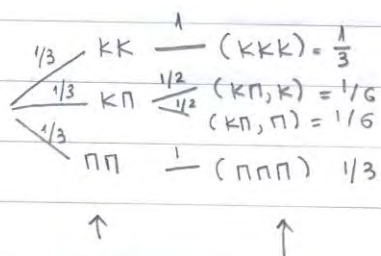 1/3 КК 1 (ККК) = 1/3
1/3 КП 1/2 (КП, К) = 1/6
1/2 (КП, П) = 1/6
1/3 ПП 1 (ППП) 1/3